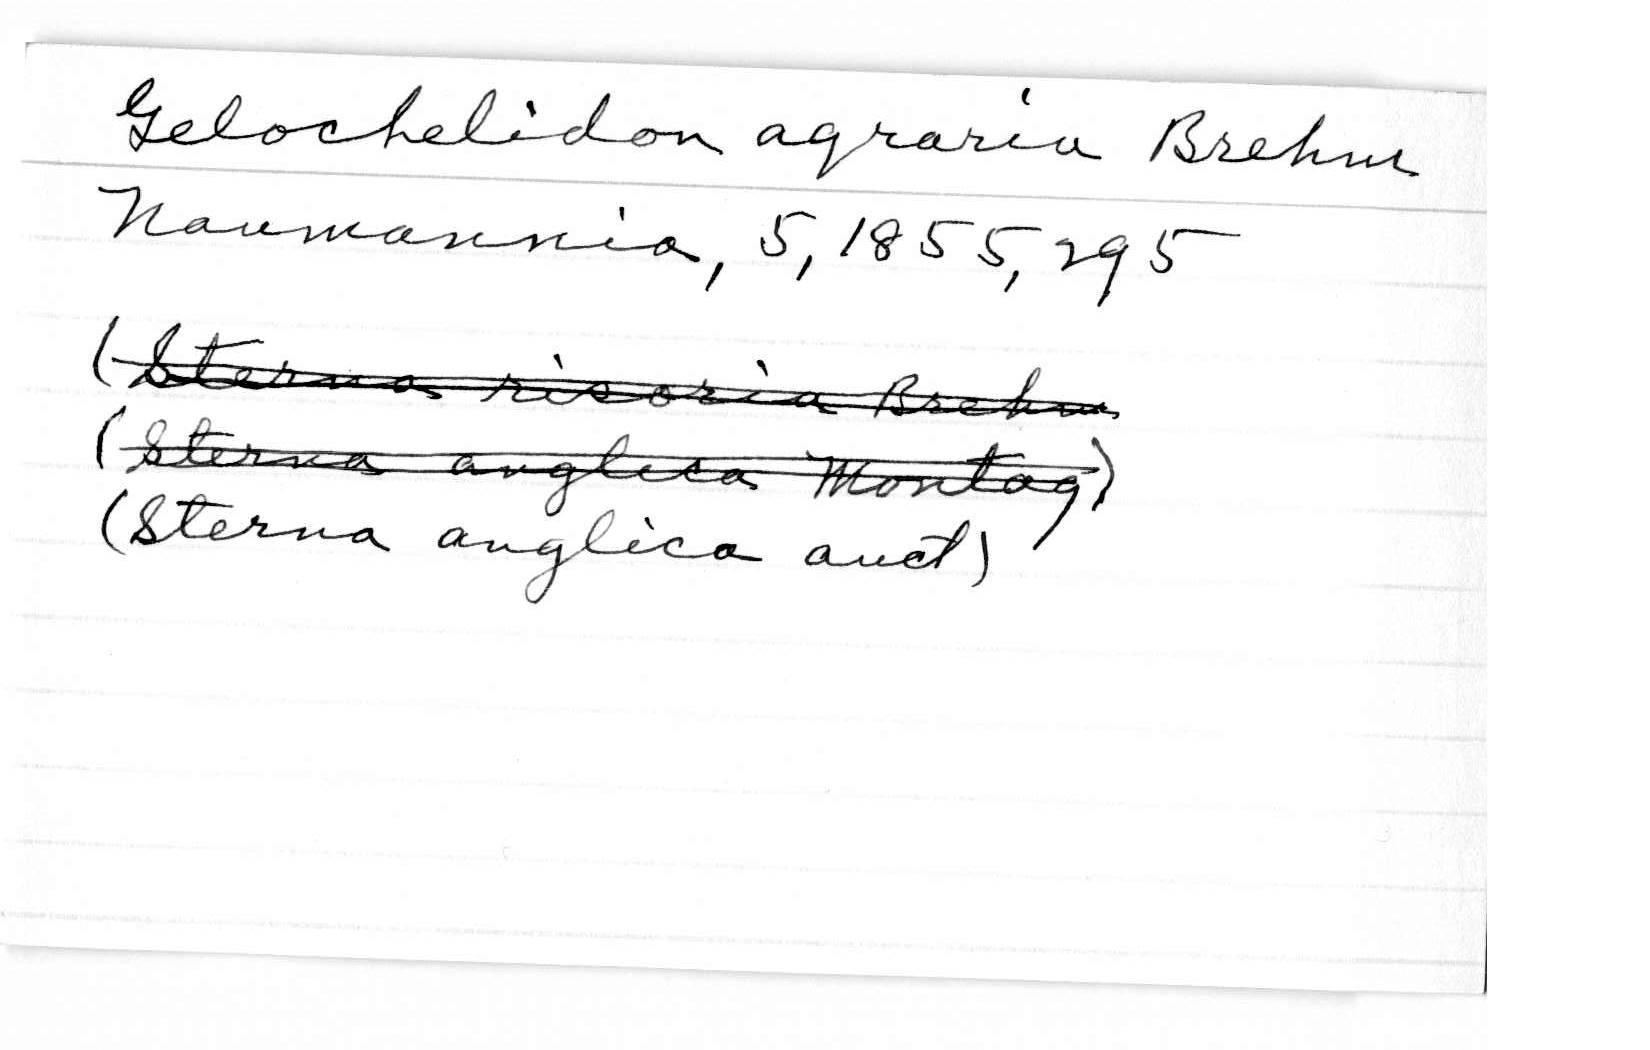 Gelochelidon agraria Brehm
Naumannia, 5, 1855, 295
(Sterna risoria Brehm
(Sterna anglica Montag)
(Sterna anglica auct)